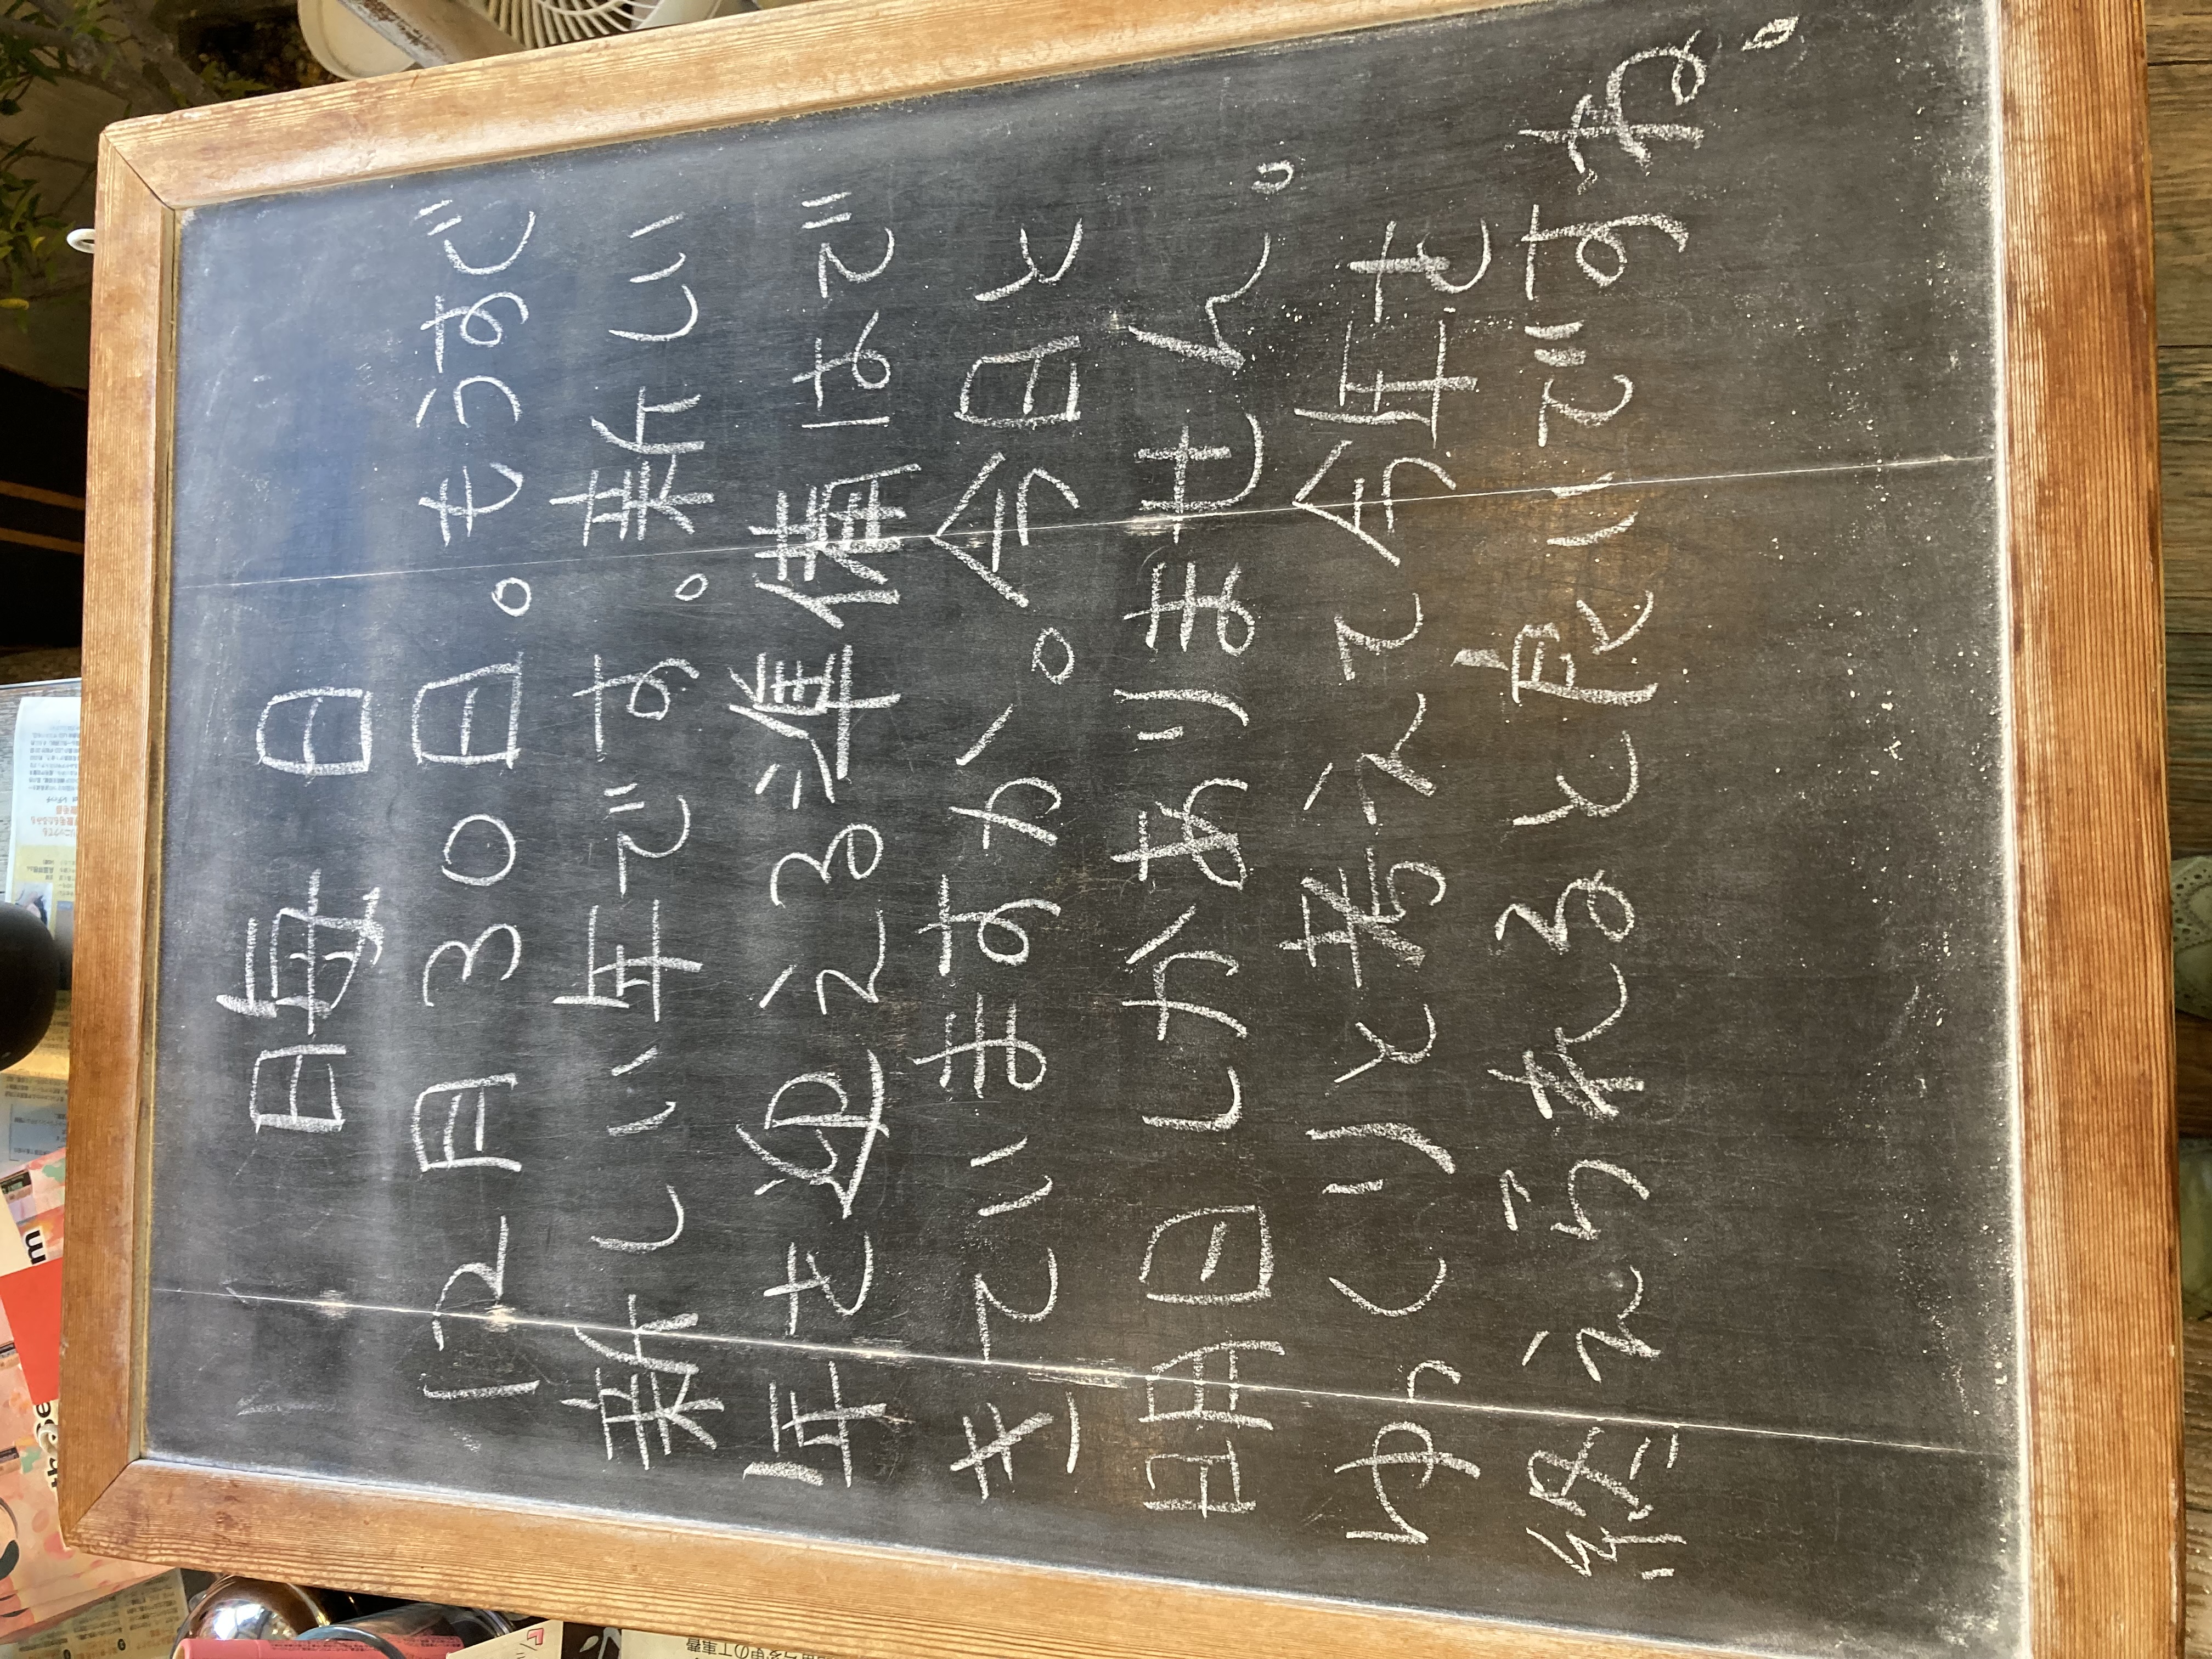 日毎 日
12月30日。もうすぐ
新しい年です。新しい
年を迎える準備はで
きていますか。今日と
明日しかありません。
ゆっくりと考えて今年を
終えられると良いですね。